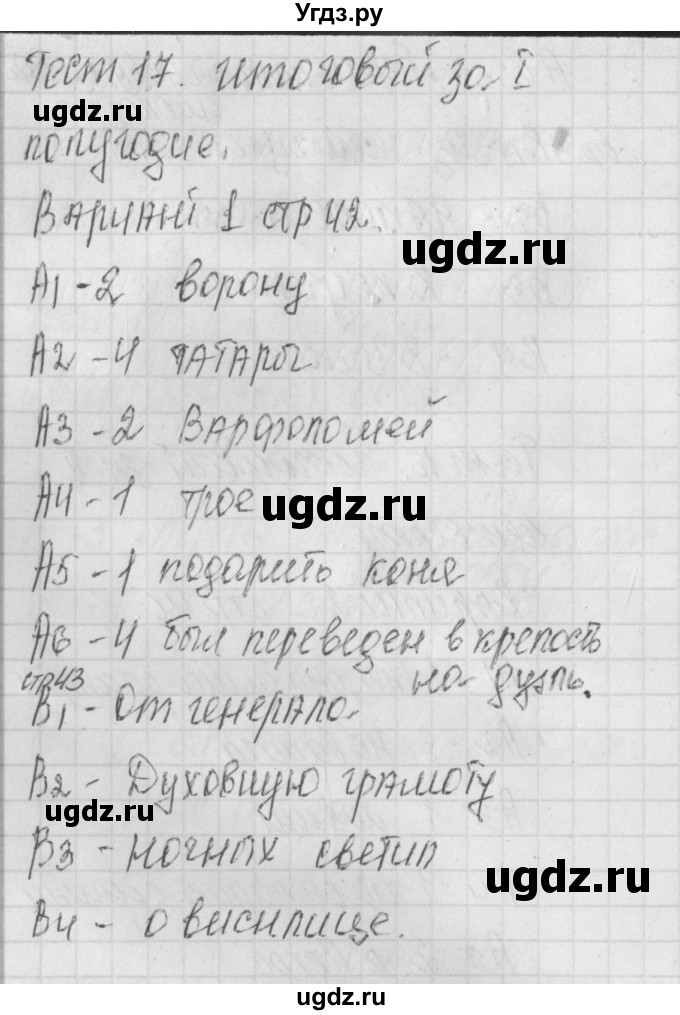 Угдз.ру
Тест 17. итоговый за I
полугодие.
Вариант 1 стр 42.
ugdz.ru
А1 - 2 ворону
А2 - 4 татары
А3 - 2 Варфоломей
А4 - 1 трое
ugdz.ru
А5 - 1 подарить коня
А6 - 4 был переведен в крепость
на дуэль.
стр 43
В1 - От генерала.
В2 - Духовную грамоту
ugdz.ru
В3 - ночных светил
ugdz.ru
В4 - о висилице.
ugdz.ru